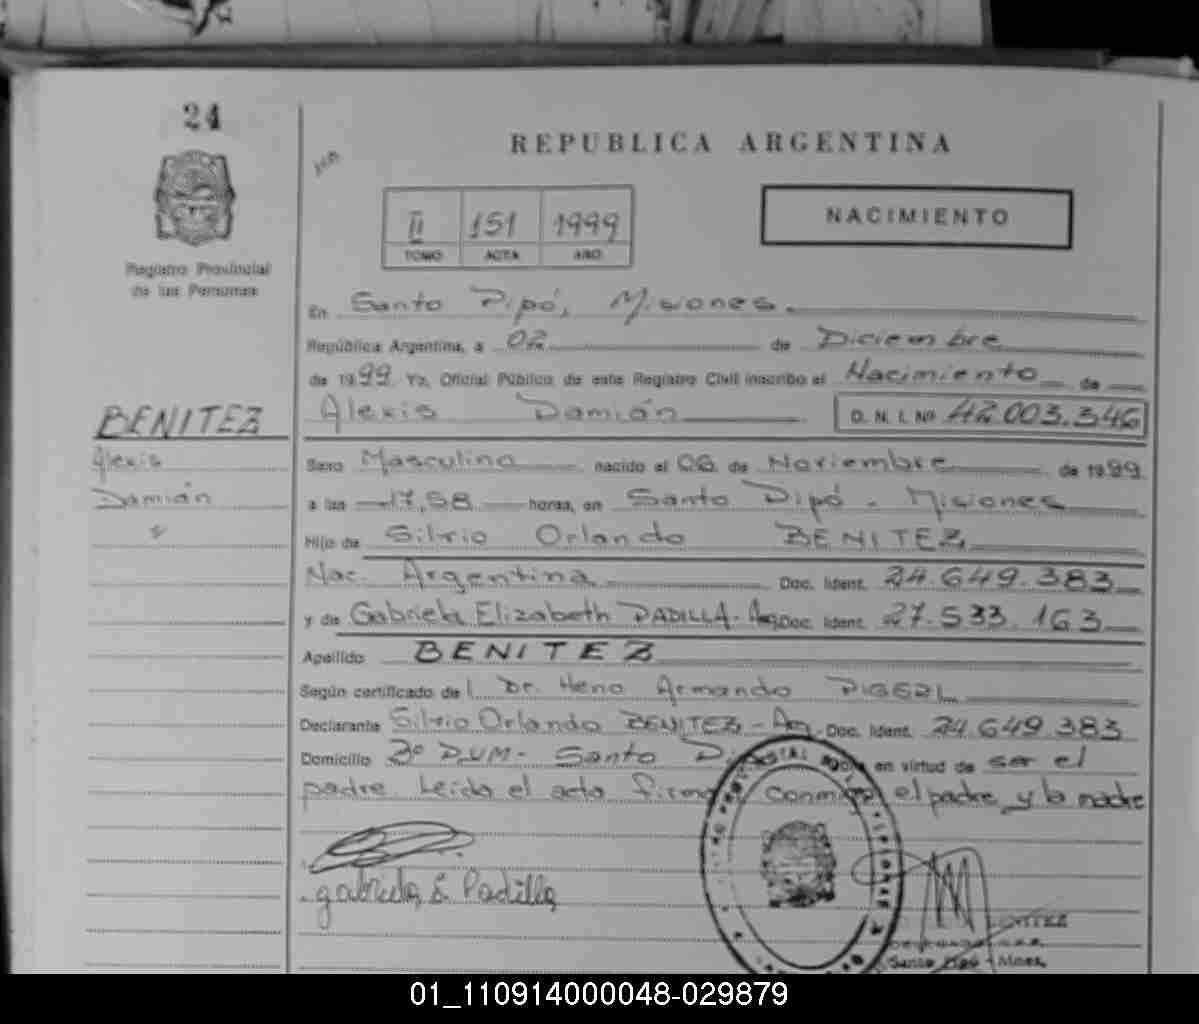 24
REPUBLICA ARGENTINA
II 151 1999
TOMO ACTA AÑO
NACIMIENTO
Registro Provincial
de las Personas
En Santo Pipó, Misiones.
República Argentina, a 02 de Diciembre
de 1999 Yo, Oficial Público de este Registro Civil inscribo el Nacimiento de
Alexis Damián D. N. I. Nº 42.003.346
BENITEZ
Alexis
Damián
Sexo Masculino nacido el 06 de Noviembre de 1999
a las 17,58 horas, en Santo Pipó - Misiones
Hijo de Silvio Orlando BENITEZ
Nac. Argentina Doc. Ident. 24.649.383
y de Gabriela Elizabeth PADILLA - Arg. Doc. Ident. 27.533.163
Apellido BENITEZ
Según certificado de Dr. Heno Armando
Declarante Silvio Orlando BENITEZ - Arg. Doc. Ident. 24.649.383
Domicilio Bº Santo en virtud de ser el
padre. Leida el acta conmigo el padre y la madre
gabriela E. Padilla
Santo Pipó - Mnes.
01_110914000048-029879